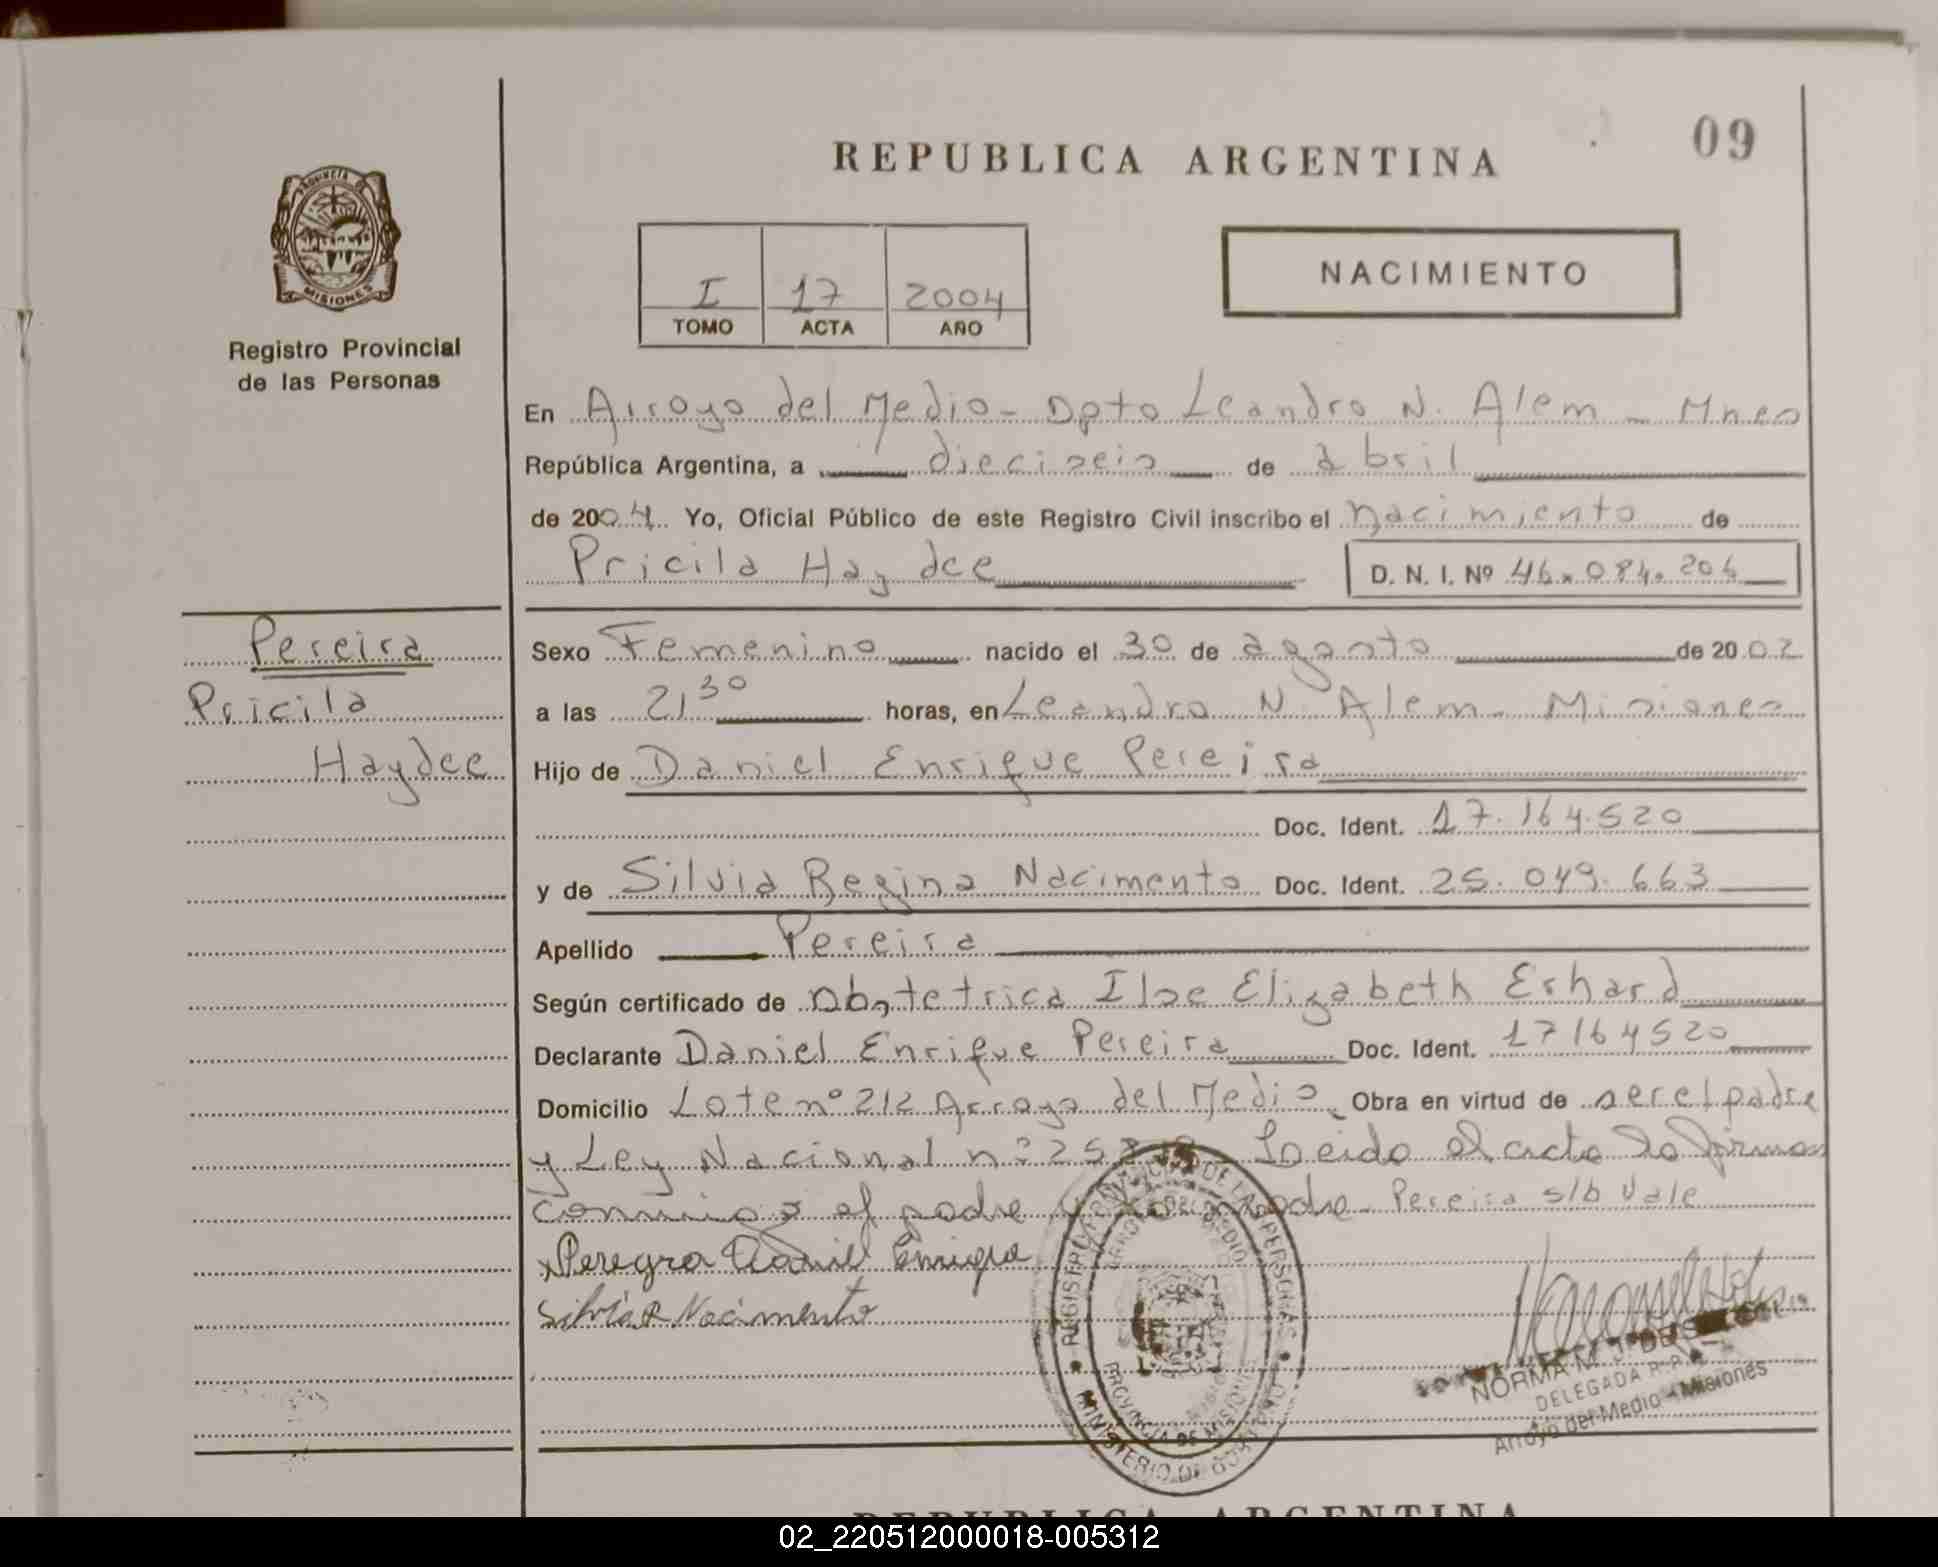 REPUBLICA ARGENTINA
09
PROVINCIA DE
MISIONES
Registro Provincial
de las Personas
I 17 2004
TOMO ACTA AÑO
NACIMIENTO
En Arroyo del Medio - Dpto Leandro N. Alem - Mnes
República Argentina, a dieciseis de abril
de 2004. Yo, Oficial Público de este Registro Civil inscribo el nacimiento de
Pricila Haydee D. N. I. Nº 46.084.206
Pereira
Pricila
Haydee
Sexo Femenino nacido el 30 de agosto de 2002
a las 21,30 horas, en Leandro N. Alem - Misiones
Hijo de Daniel Enrique Pereira
Doc. Ident. 17.164.520
y de Silvia Regina Nacimento Doc. Ident. 25.049.663
Apellido Pereira
Según certificado de Obstetrica Ilse Elizabeth Erhard
Declarante Daniel Enrique Pereira Doc. Ident. 17164520
Domicilio Lote nº 212 Arroyo del Medio. Obra en virtud de ser el padre
y Ley Nacional nº Leido el acta la firman
conmigo el padre y la madre - Pereira s/b Vale
Pereyra Daniel Enrique
Silvia R Nacimento
REGISTRO PROVINCIAL DE LAS PERSONAS
ARROYO DEL MEDIO
PROVINCIA DE MISIONES
MINISTERIO DE GOBIERNO
NORMA M. J. DE
DELEGADA R.P.P.
Arroyo del Medio - Misiones
REPUBLICA ARGENTINA
02_220512000018-005312